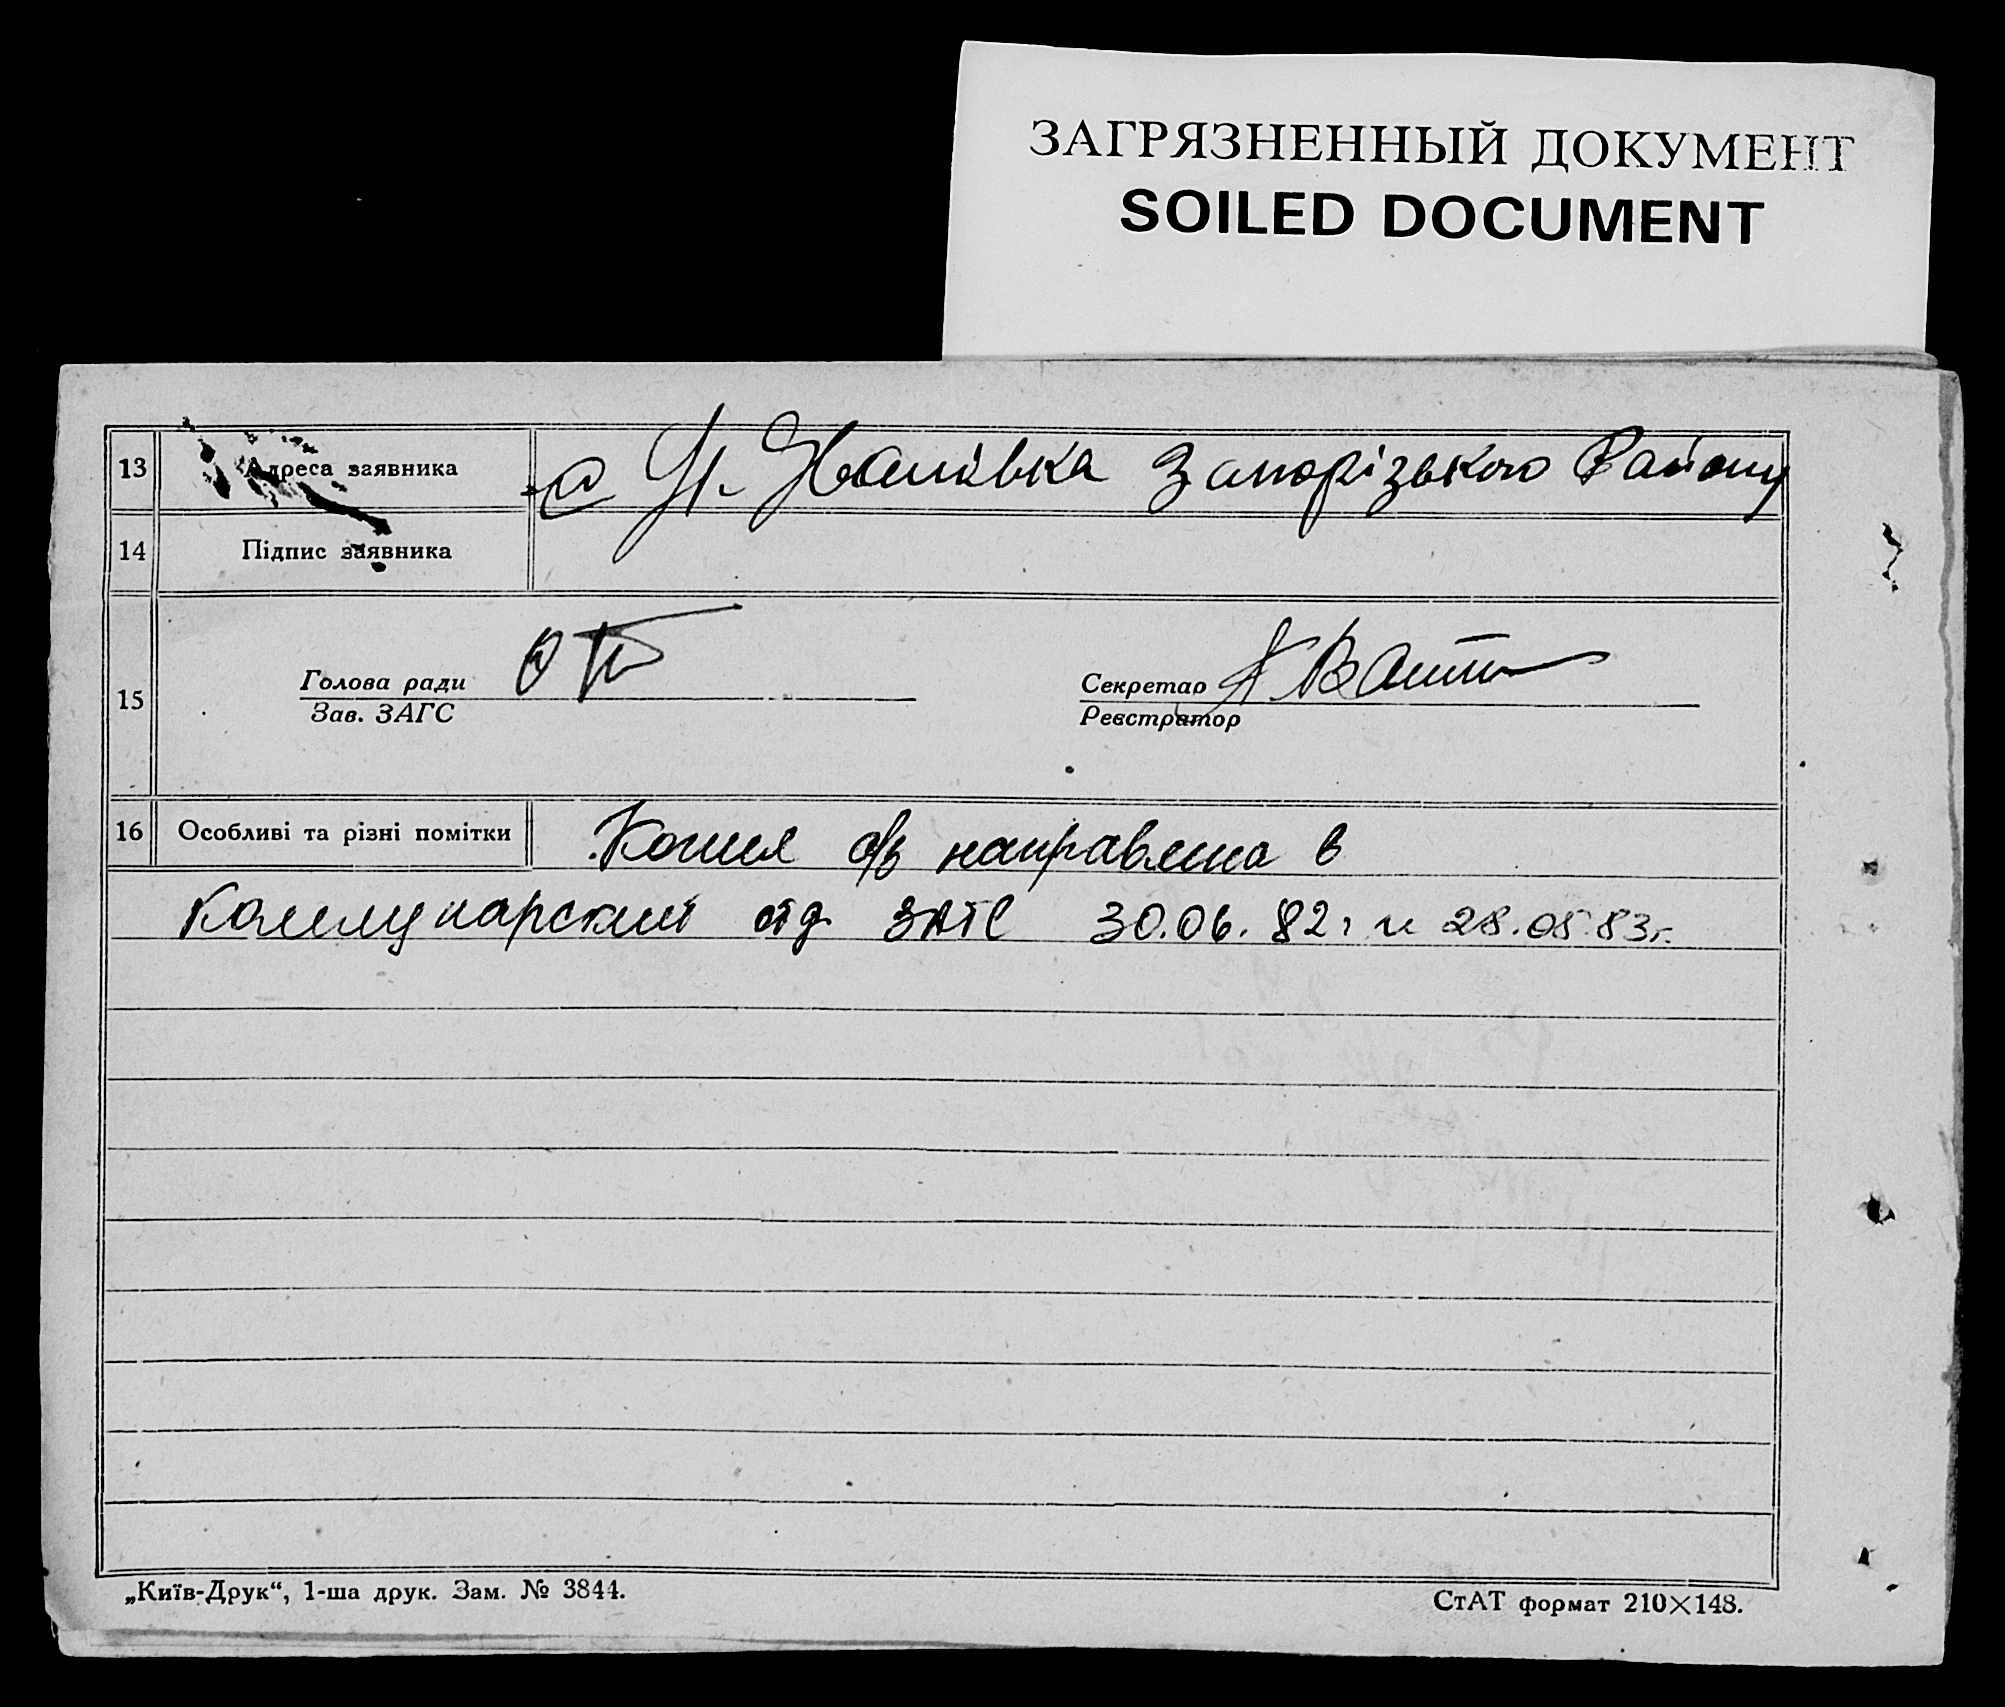 ЗАГРЯЗНЕННЫЙ ДОКУМЕНТ
SOILED DOCUMENT
13 Адреса заявника с Запорізького Району
14 Підпис заявника
15 Голова ради Секретар
Зав. ЗАГС Реєстратор
16 Особливі та різні помітки Копия а/з направлена в
Коммунарский отд ЗАГС 30.06.82г и 28.05.83г.
„Київ-Друк“, 1-ша друк. Зам. № 3844. СтАТ формат 210×148.